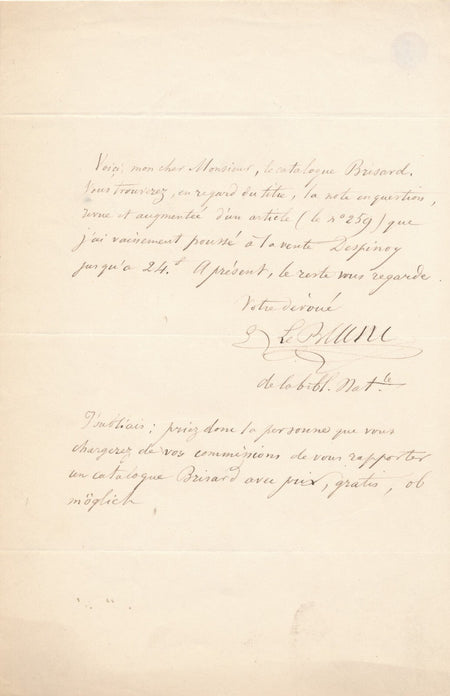 Voici, mon cher Monsieur, le catalogue Brisard.
Vous trouverez, en regard du titre, la note en question,
revue et augmentée d'un article (le n° 259) que
j'ai vainement poussé à la vente Despinoy
jusqu'a 24.f A présent, le reste vous regarde.
Votre dévoué
Le Blanc
de la bibl. Nat.le
J'oubliais : priez donc la personne que vous
chargerez de vos commissions de vous rapporter
un catalogue Brisard avec prix, gratis, ob
möglich